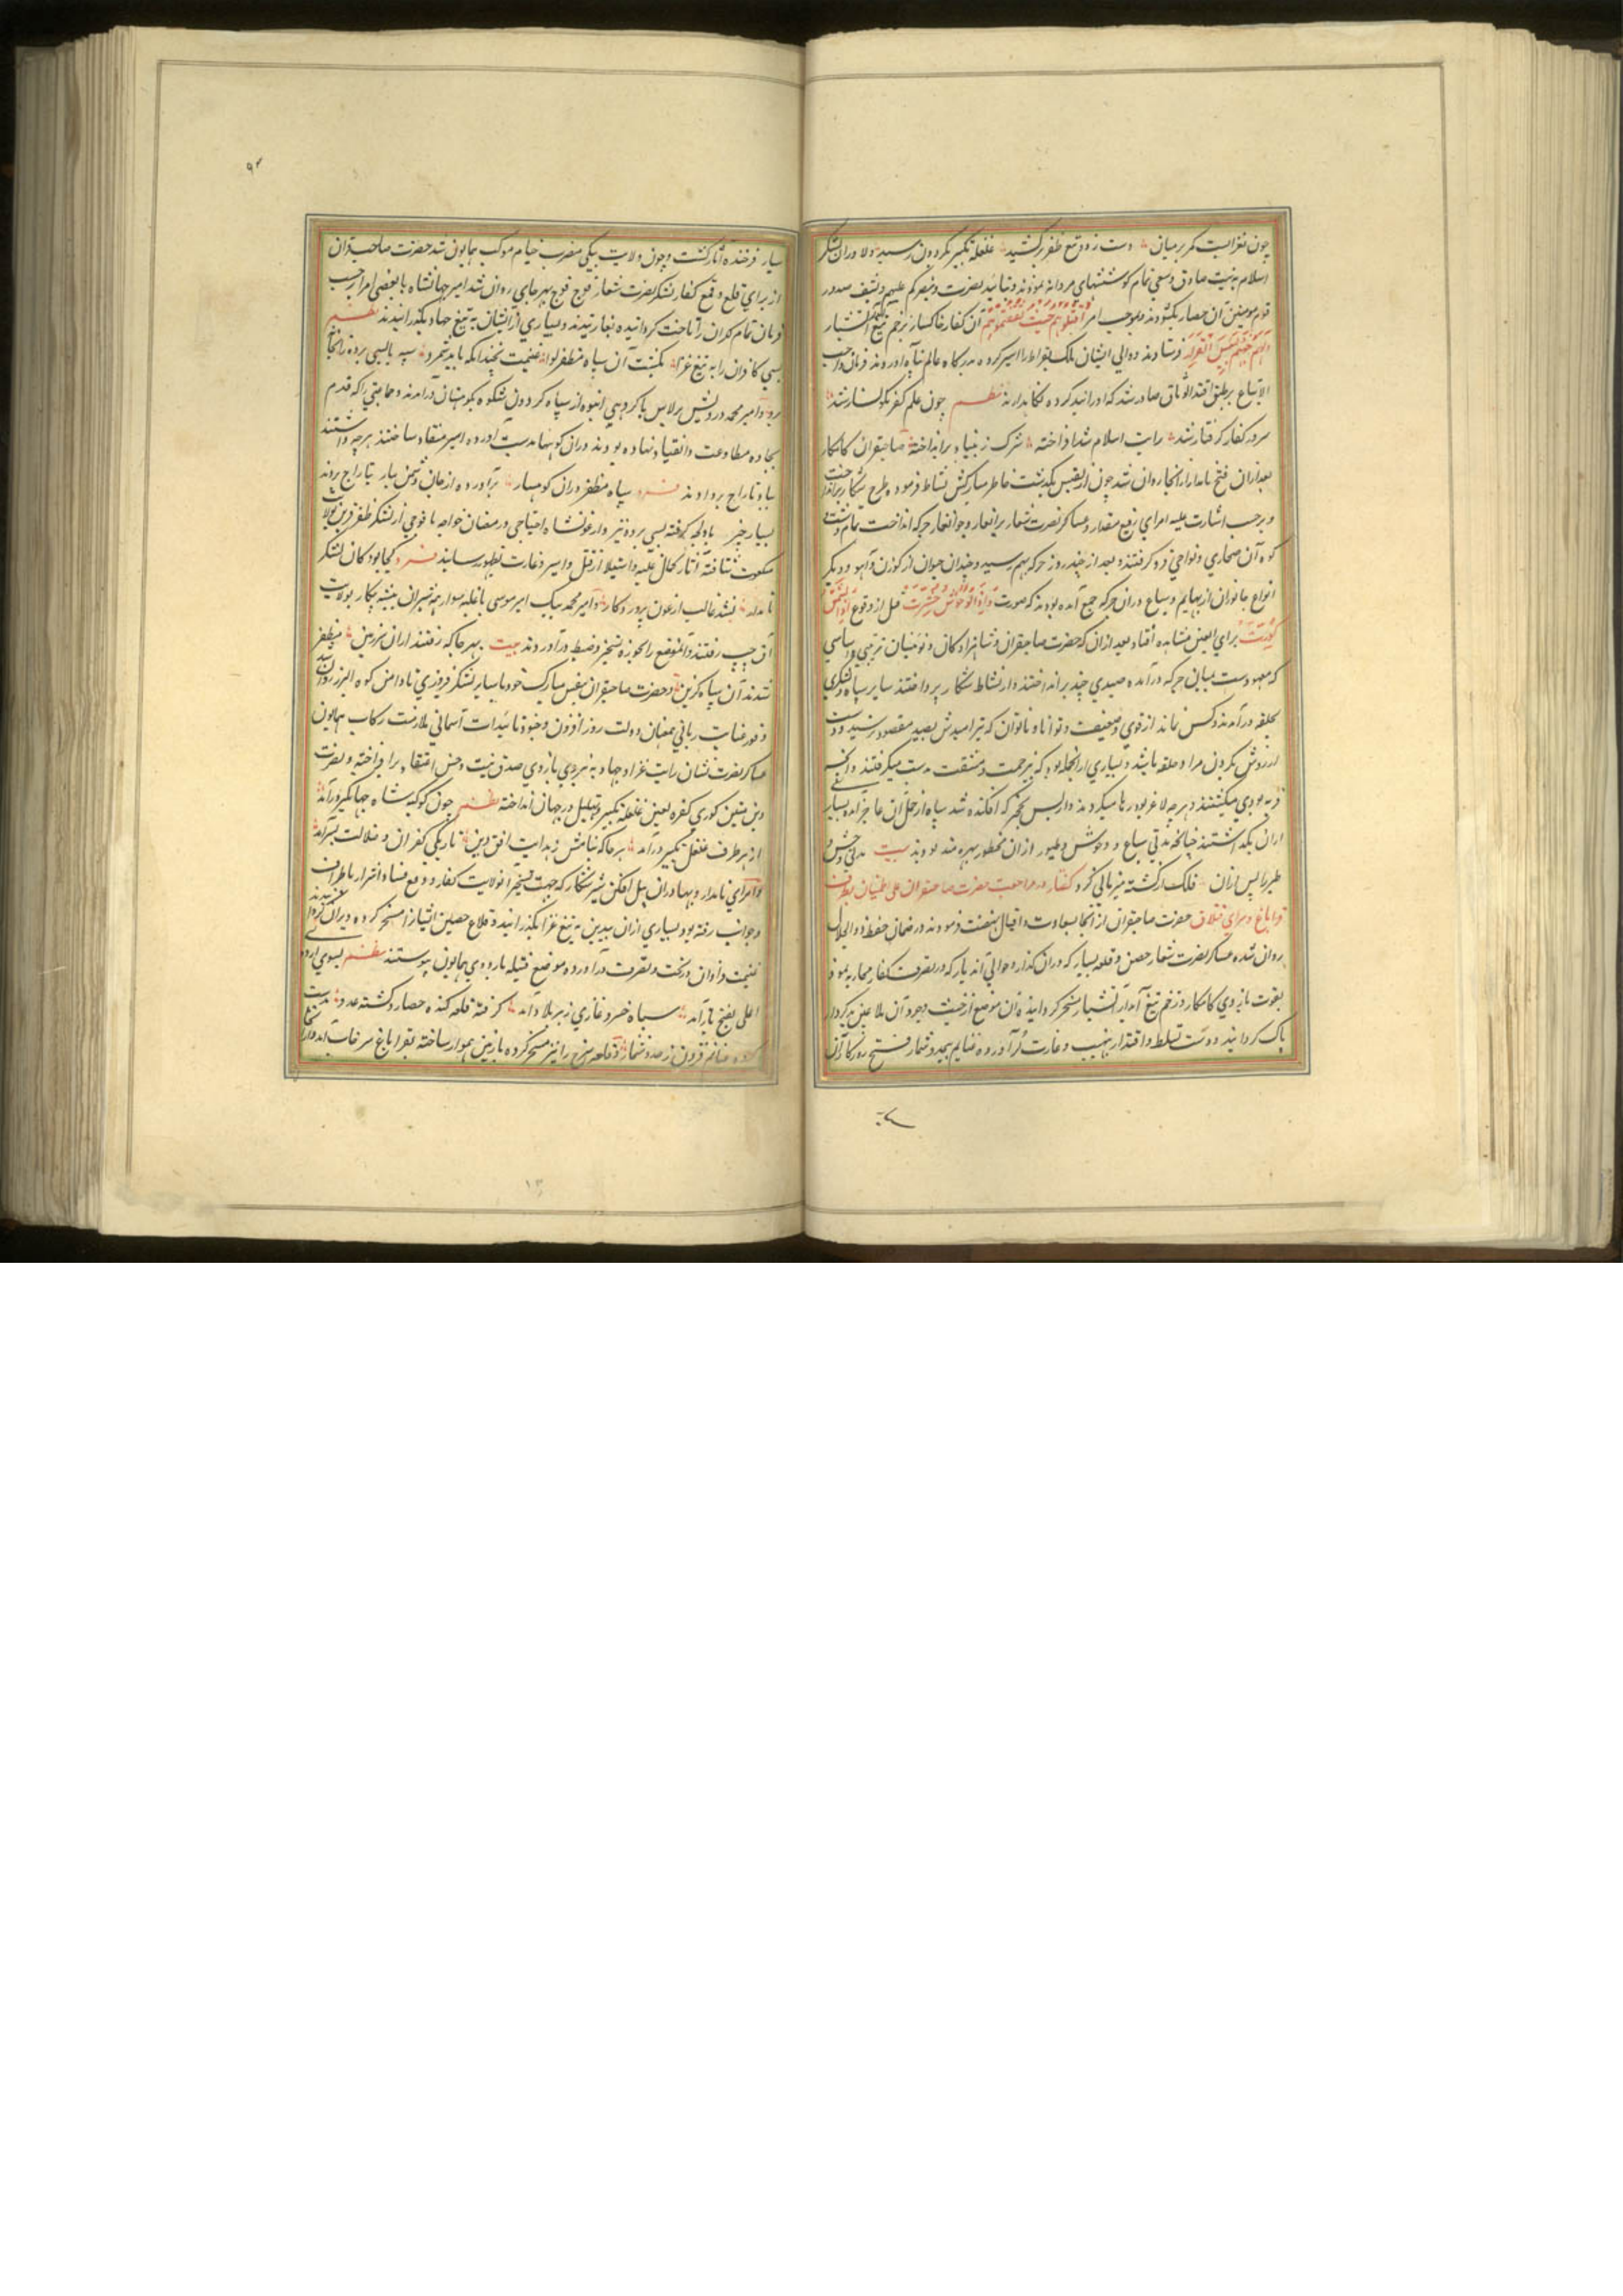 چون بغزا بست کمر بر میان دست زد و تیغ ظفر برکشید غلغله تکبیر بگردون رسید و دلاوران لشکر
اسلام به نیت صادق و سعی تمام کوششهای مردانه نمودند و بتائید نصرت و ینصرکم علیهم و یشف صدور
قوم مومنین آن حصار بگشودند و بموجب امر اقتلوهم حیث ثقفتموهم آن کفار خاکسار بزخم تیغ آتشبار
جهنم و بئس القرار فرستادند و والی ایشان ملک بقراط را اسیر کرده بدرگاه عالم پناه آوردند فرمان واجب
الاتباع بر طبق فشدوا الوثاق صادر شد که او را بند کرده نگاه دارند نظم چون علم کفر نگونسار شد
سرور کفار گرفتار شد رایت اسلام شد افراخته شرک ز بنیاد برانداخته صاحبقران کامکار
بعد از آن فتح نامدار از آنجا روان شد چون از تفلیس بگذشت خاطر مبارکش نشاط فرمود و طرح شکار برانداخت
و برحسب اشارت علیه امرای رفیع مقدار و عساکر نصرت شعار برانغار و جوانغار جرکه انداخت تمام دشت و
کوه آن صحاری و نواحی فرو گرفتند و بعد از چند روز جرکه بهم رسید و چندان حیوان از گوزن و آهو و دیگر
انواع جانوران از بهایم و سباع در آن جرکه جمع آمده بودند که صورت و اذا الوحوش حشرت قبل از وقوع اذا الشمس
کورت برای العین مشاهده افتاد بعد از آن که حضرت صاحبقران و شاهزادگان و نوئینان بترتیبی و یاسی
که معهودست بمیان جرکه درآمده صیدی چند برانداختند و از نشاط شکار بپرداختند سایر سپاه و لشکری
بحلقه درآمدند و کس نماند از قوی و ضعیف و توانا و ناتوان که تیر امیدش بصید مقصود نرسید و دست
آرزوش بگردن مراد حلقه نا شد و بسیاری از آنجمله بود که بی زحمت و مشقت بدست میگرفتند و آنچه
فربه بودی میکشتند و هرچه لاغر بود رها میکردند و از بس نخجیر که افکنده شد سپاه از حمل آن عاجز آمده بسیار
از آن بگذاشتند چنانچه مدتی سباع و وحوش و طیور از آن محظور بهره مند بودند بیت مدتی وحش و
طیر را پس از آن فلک از کشته میزبانی کرد گفتار در مراجعت حضرت صاحبقران علی اطمینان بطرف
قراباغ و سرای قشلاق حضرت صاحبقران از آنجا بسعادت و اقبال نهضت فرمودند در ضمان حفظ ذو الجلال
روان شده عساکر نصرت شعار حصن و قلعه بسیار که در آن گذار و حوالی آن دیار که در تصرف کفار محاربه نمود
بقوت بازوی کامکار و زخم تیغ آبدار آتشبار مسخر گردانیدند آن موضع از خبث وجود آن ملاعین بدکردار
پاک گردانید و دست تسلط و اقتدار بنهیب و غارت برآورده غنایم بیحد و شمار فتح روزگار آن
سپاه فرخنده آثار گشت و چون ولایت بیگی مضرب خیام موکب همایون شد حضرت صاحبقران
از برای قلع و قمع کفار لشکر نصرت شعار فوج فوج بهر جای روان شد امیر جهانشاه با بعضی امرا حسب
فرمان تمام کدران را تاخت کردانیده بغارتیدند و بسیاری از ایشان به تیغ جهاد بگذرانیدند نظم
بسی کافران را به تیغ غزا بکشت آن سپاه مظفر لوا غنیمت نچندانکه باید شمرد سپه بالسبی برده زانجا
برد و امیر محمد درویش برلاس با گروهی انبوه از سپاه گردون شکوه بکوهستان درآمدند و جماعتی را که قدم
بجاده مطاوعت و انقیاد نهاده بودند در آن کوهها بدست آورده اسیر منقاد ساختند هرچه داشتند
بباد تاراج بردادند سپاه مظفر در آن کوهسار برآورده از جان دشمن دمار بتاراج بردند
بسیار چیز باولجه گرفته بسی برده نیز و ارغونشاه اختاجی و رمضان خواجه با فوجی از لشکر ظفر قرین بولایت
شتافته آثار کمال غلبه و استیلا از قتل و اسر و غارت بظهور رسانید کجا بود کان لشکر
نامدار نشد غالب از عون پروردگار و امیر محمد بیک امیر موسی با غلبه سوار همه شیران بیشه پیکار بولایت
آق رفتند و آن موضع را بحوزه تسخیر و ضبط درآوردند بیت بهر جا که رفتند ازان سرزمین مظفر
شدند آن سپاه گزین و حضرت صاحبقران بنفس مبارک خود با سایر لشکر فیروزی تا دامن کوه البرز روان شد
وفور عنایت ربانی همعنان دولت روز افزون و جنود تائیدات آسمانی ملازمت رکاب همایون
عساکر نصرت نشان رایت غزا و جهاد به نیروی بازوی صدق نیت و حسن اعتقاد برافراخته و بنصرت
دین متین کوری کفره لعین غلغله تکبیر و تهلیل در جهان انداخته نظم چون کوکبه شاه جهانگیر درآمد
از هر طرف غلغل تکبیر درآمد هر جا که بتابش ز هدایت افق دین تاریکی کفران و ضلالت بسرآمد
و امرای نامدار و بهادران پیل افکن شیر شکار که جهت تسخیر آن ولایت کفار و دفع فساد اشرار باطراف
و جوانب رفته بود بسیاری ازان بیدین به تیغ غزا بگذرانید و قلاع حصین ایشانرا مسخر کرده ویران گردانیدند
غنیمت فراوان در تحت و تصرف درآورده موضع قتیله باردوی همایون پیوستند نظم بسوی اردوی
اعلی بفتح بازآمد سپاه خسرو غازی ز بر بلاد آمد گرفته قلعه کنده حصار و کشته عدو بدست
کرده غنایم فزون ز حد و شمار و قلعه سرخ را نیز مسخر کرده با زمین هموار ساخته بقراباغ سرخاب آمد و از آنجا